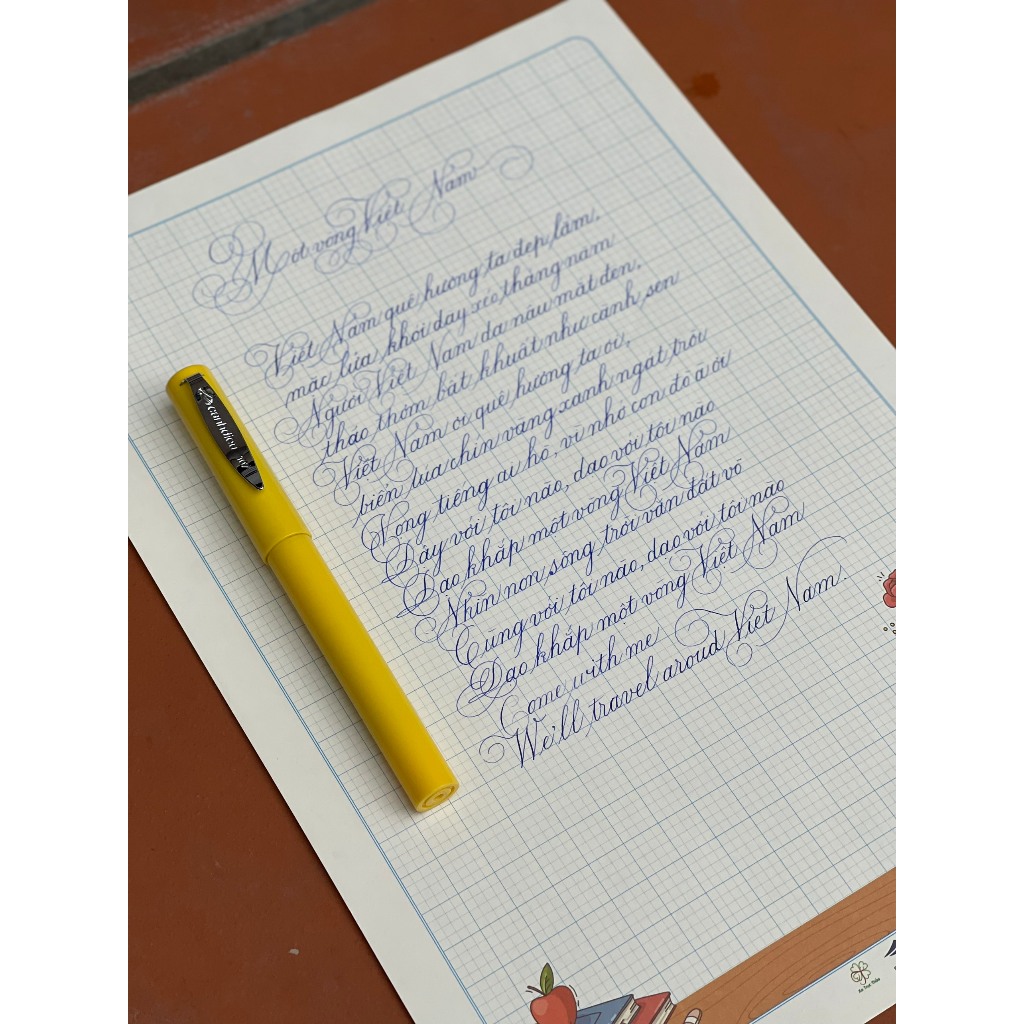 Một vòng Việt Nam
Việt Nam quê hương ta đẹp lắm.
mặc lửa khói dày xéo tháng năm
Người Việt Nam da nâu mắt đen.
thảo thơm bất khuất như cánh sen
Việt Nam ơi quê hương ta ơi,
biển lúa chín vàng xanh ngát trời
Vọng tiếng ai hò, vi nhỏ con đò ã ới
Dậy với tôi nào, dạo với tôi nào
Dạo khắp một vòng Việt Nam
Nhìn non sông trời vân đất võ
Cùng với tôi nào, dạo với tôi nào
Dạo khắp một vòng Việt Nam
Come with me
We'll travel aroud Việt Nam.
canhdieu